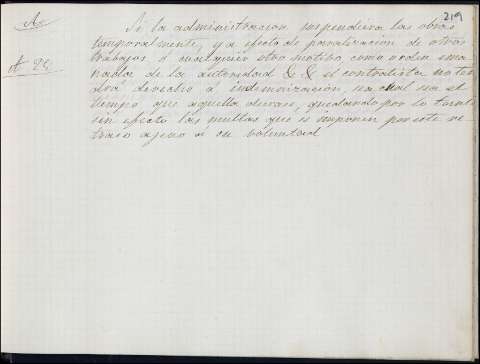 219
Ar.
At 25
Si la administracion suspendiera las obras
temporalmente, ya efecto de paralizacion de otros
trabajos ó cualquier otro motivo como orden ema
nada de la autoridad &. &. el contratista no ten
dra derecho á indemnización, sea cual sea el
tiempo que aquella durase, quedando por lo tanto
sin efecto las multas que se imponen por este re
traso ajeno á su voluntad